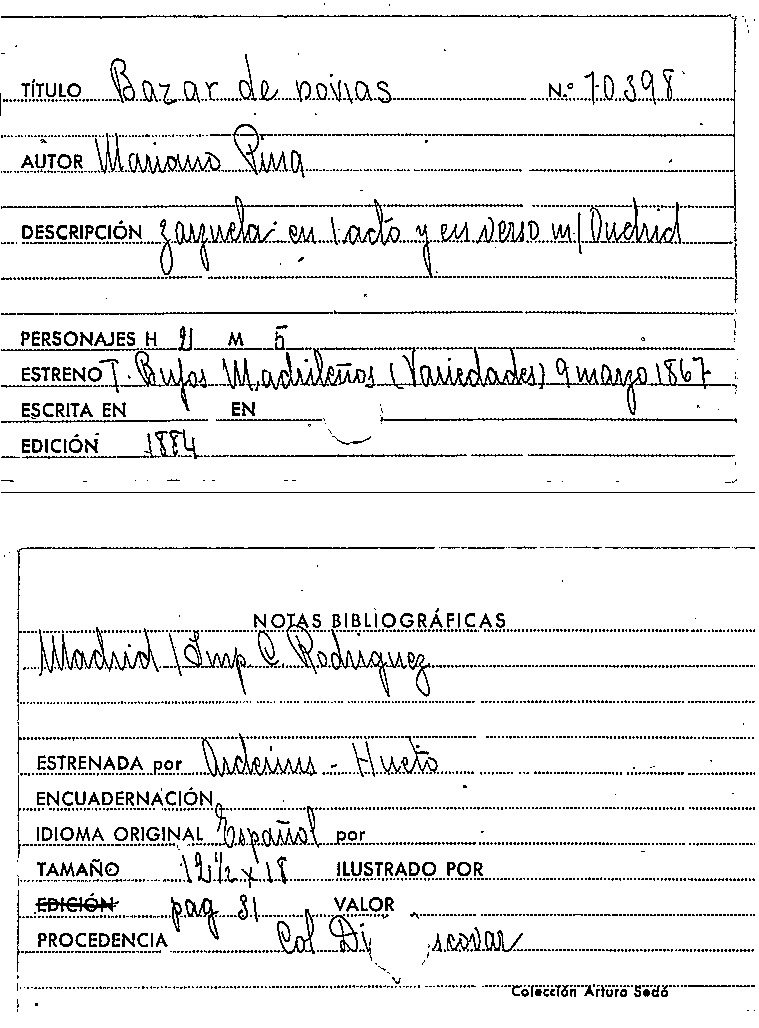 TÍTULO Bazar de novias N.º 70398
AUTOR Mariano Pina
DESCRIPCIÓN zarzuela en 1 acto y en verso m/ Oudrid
PERSONAJES H 21 M 5
ESTRENO T. Bufos Madrileños (Variedades) 9 marzo 1867
ESCRITA EN EN
EDICIÓN 1884
NOTAS BIBLIOGRÁFICAS
Madrid / Imp C. Rodriguez
ESTRENADA por Arderius - Hueto
ENCUADERNACIÓN
IDIOMA ORIGINAL Español por
TAMAÑO 12½ x 18 ILUSTRADO POR
EDICIÓN pag 31 VALOR
PROCEDENCIA Col Di scovar
Colección Arturo Sedó